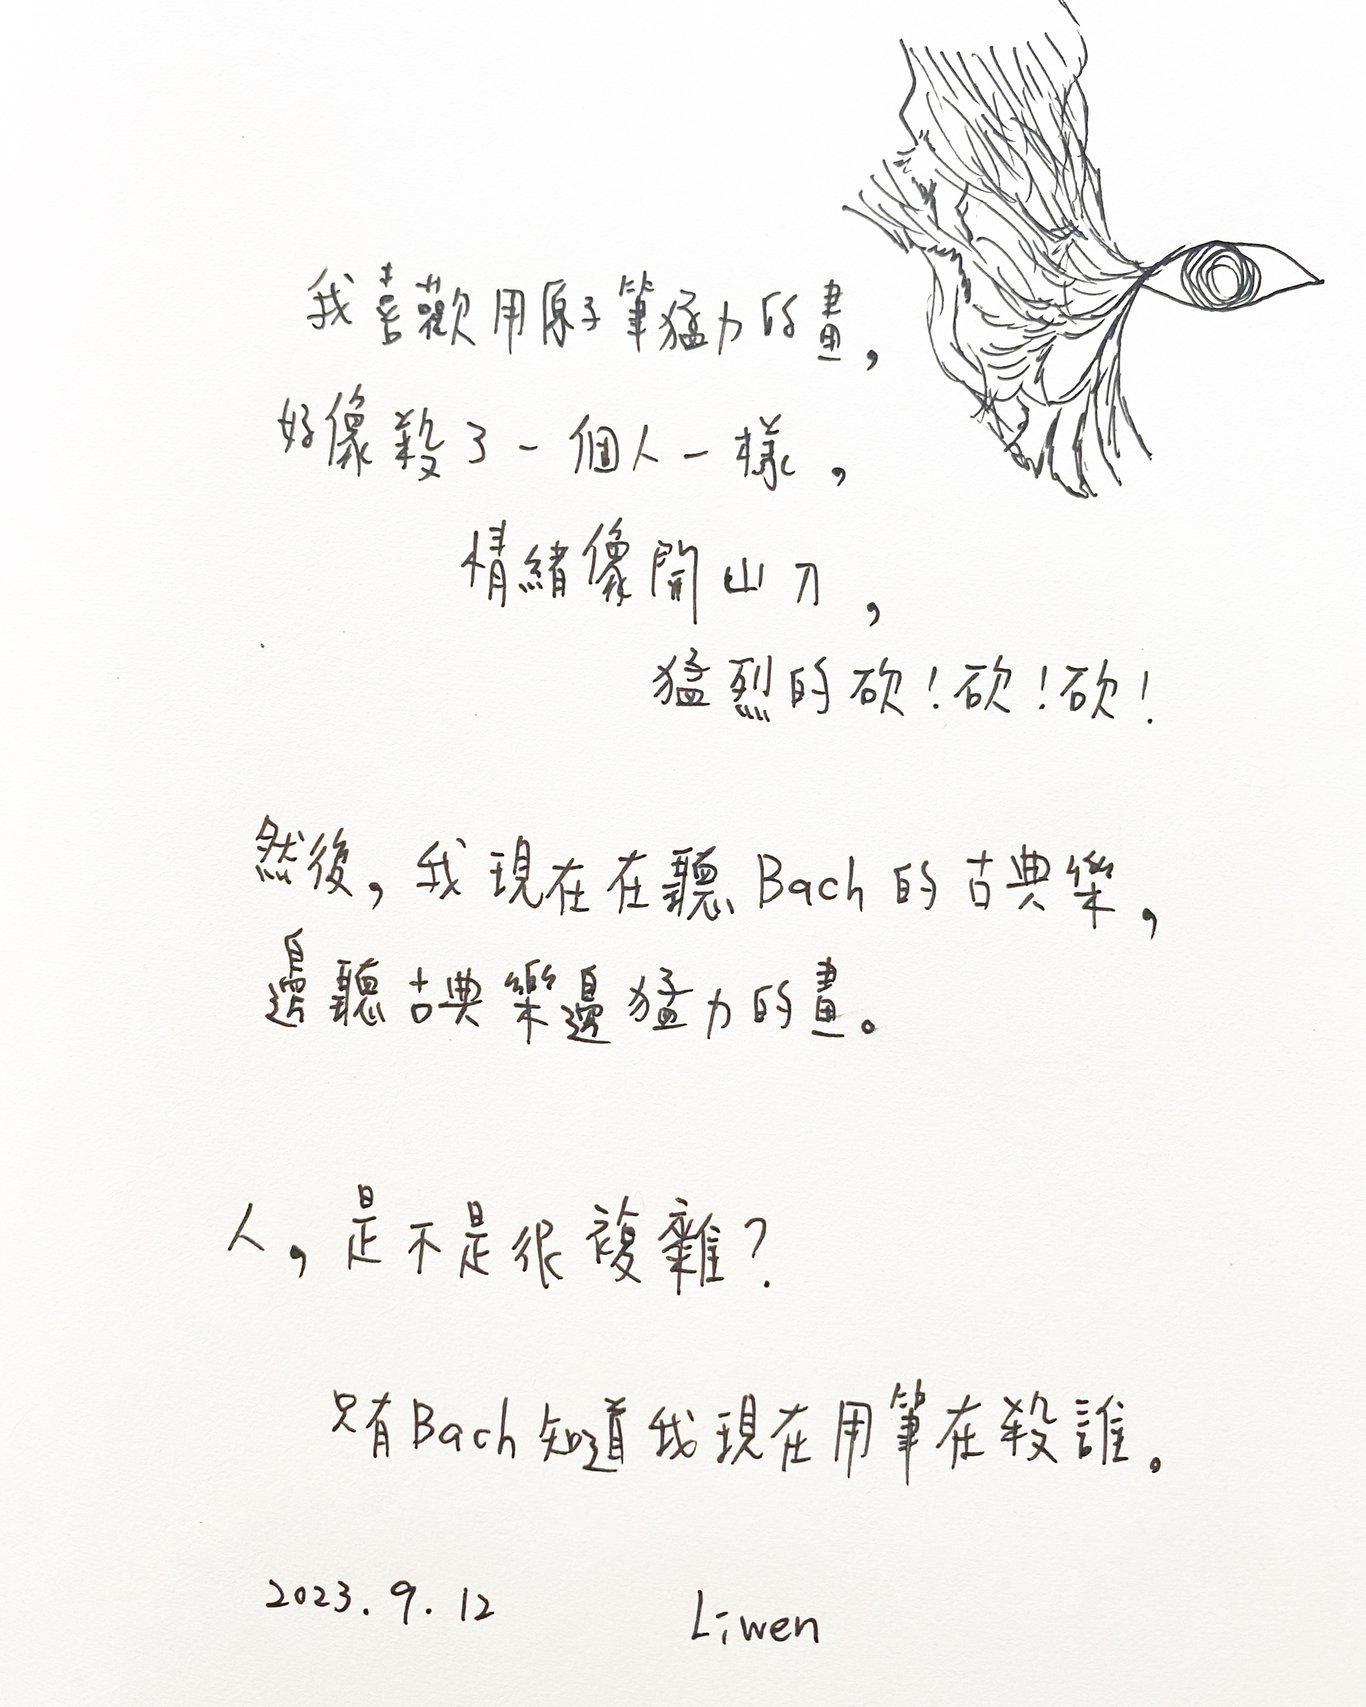 我喜歡用原子筆猛力的畫，
好像殺了一個人一樣，
情緒像開山刀，
猛烈的砍！砍！砍！
然後，我現在在聽Bach的古典樂，
邊聽古典樂邊猛力的畫。
人，是不是很複雜？
只有Bach知道我現在用筆在殺誰。
2023.9.12 Liwen